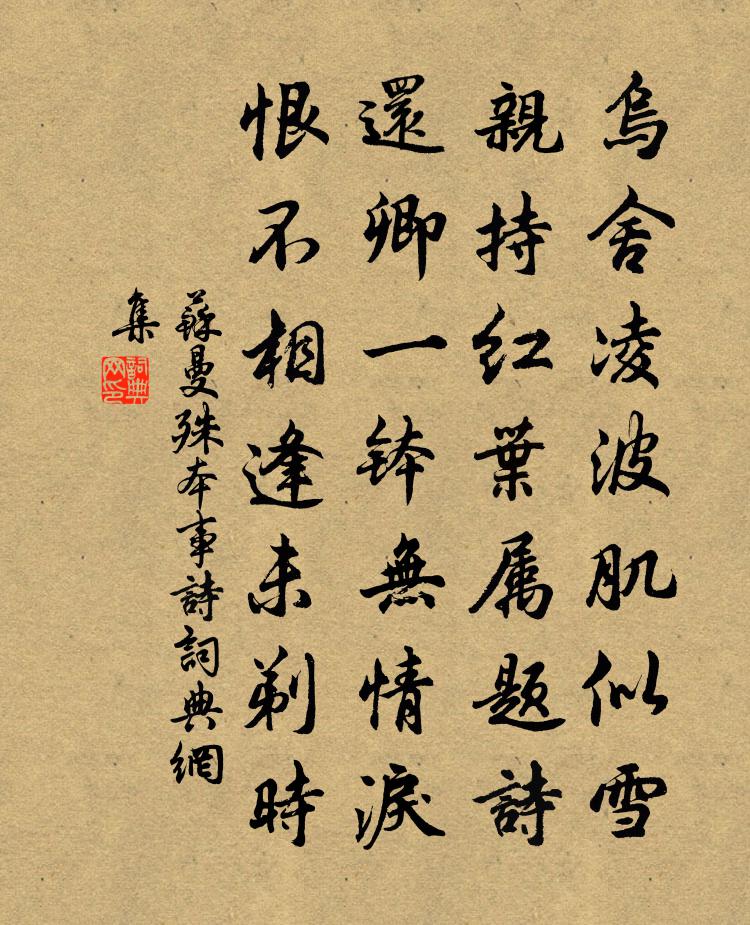 烏舍凌波肌似雪
親持紅葉属題詩
還卿一鉢無情淚
恨不相逢未剃時
蘇曼殊本事詩詞典網
集
詞典
网印